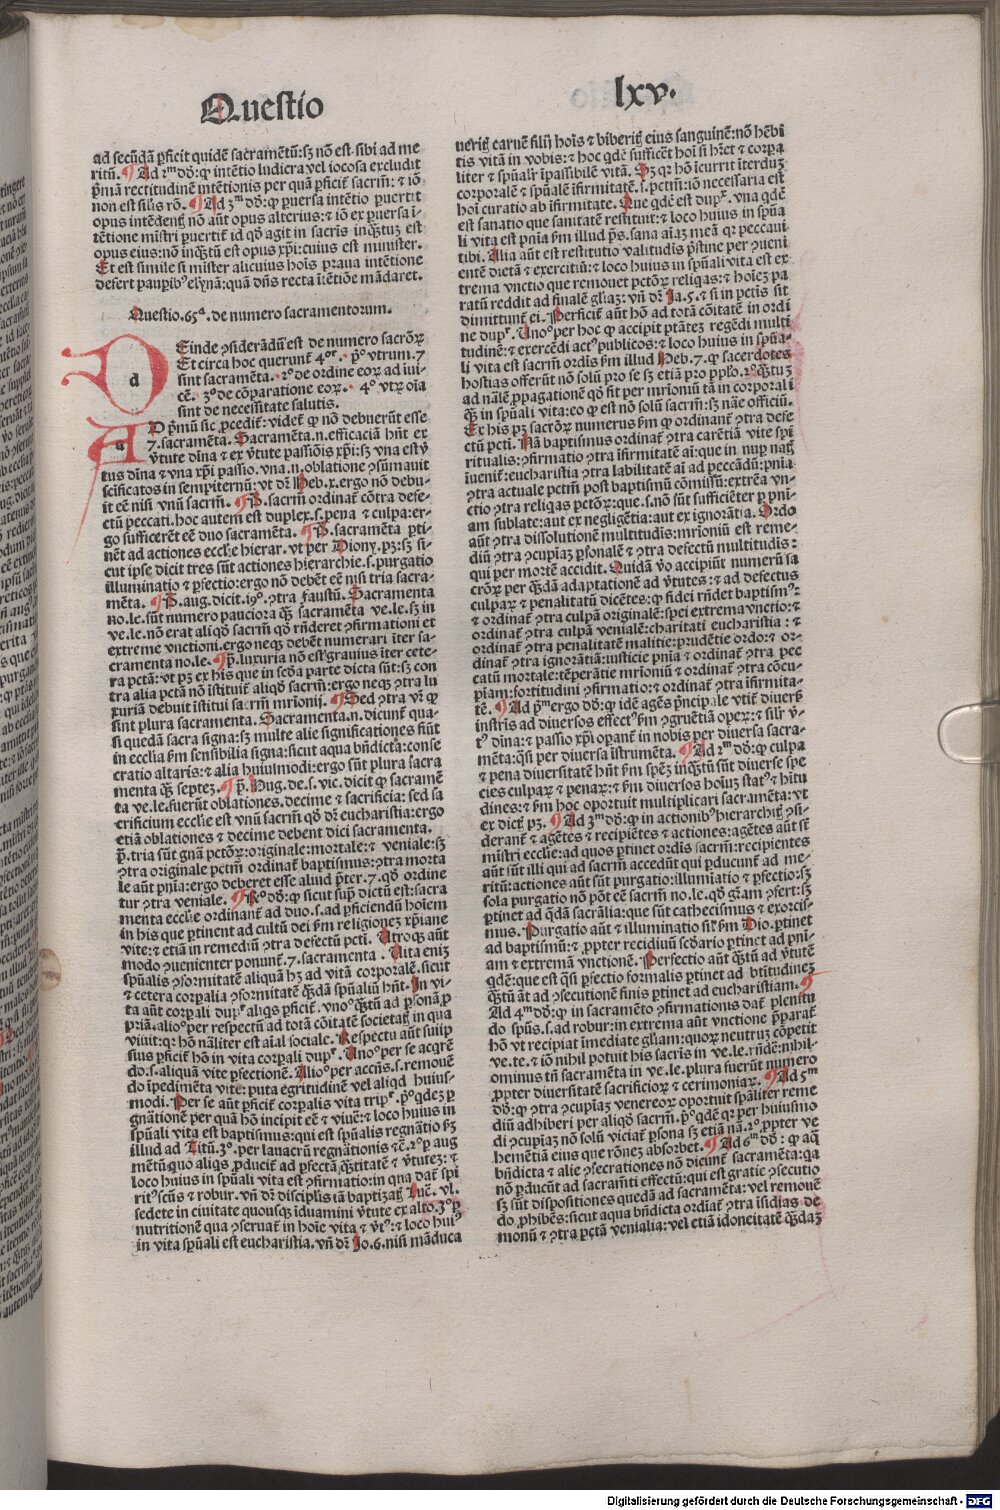 Questio
lxv.
ad secūdā ꝑficit quidē sacramētū: sꝫ nō est sibi ad me
ritū. ¶ Ad 2ᵐ dō: ꝙ intētio ludicra vel iocosa excludit
p̄mā rectitudinē intētionis per quā ꝑficit̄ sacrm̄: ⁊ iō
non est sil̓is rō. ¶ Ad 3ᵐ dō: ꝙ ꝑuersa intētio ꝑuertit
opus intēdentꝭ nō aūt opus alterius: ⁊ iō ex ꝑuersa i
tētione mīstri ꝑuertit̄ id qd̓ agit in sacris inqꝫtuꝫ est
opus eius: nō inqꝫtū est opus xp̄i: cuius est minister.
Et est simile si mīster alicuius hoīs praua intētione
defert pauꝑibꝰ elynā: quā dn̄s recta ītētiōe mādaret.
Questio. 65ª. de numero sacramentorum.
d
Einde ↄsiderādū est de numero sacrōꝝ
Et circa hoc querunt̄ 4ᵒʳ. pᵒ vtrum. 7
sint sacramēta. 2ᵒ de ordine eoꝝ ad iui-
cē. 3ᵒ de cōparatione eoꝝ. 4ᵒ vtꝝ oīa
sint de necessitate salutis.
a
D p̄mū sic ꝓcedit̄: videt̄ ꝙ nō debuerūt esse
7. sacramēta. Sacramēta .n. efficaciā hn̄t ex
v̓tute dīna ⁊ ex v̓tute passiōis xp̄i: sꝫ vna est v̓
tus dīna ⁊ vna xp̄i passio. vna .n. oblatione ↄsūmauit
sc̄ificatos in sempiternū: vt dr̄ Heb. x. ergo nō debu-
it eē nisi vnū sacrm̄. ¶ P. sacrm̄ ordinat̄ cōtra defe-
ctū peccati. hoc autem est duplex .s. pena ⁊ culpa: er-
go sufficerēt eē duo sacramēta. ¶ P. sacramēta ꝑti-
nēt ad actiones eccl̓ie hierar. vt per Diony. pꝫ: sꝫ si-
cut ipse dicit tres sūt actiones hierarchie .s. purgatio
illuminatio ⁊ ꝑfectio: ergo nō debēt eē nisi tria sacra-
mēta. ¶ P. aug. dicit. 19ᵒ. ↄtra faustū. Sacramenta
no. le. sūt numero pauciora qꝫ sacramēta ve. le. sꝫ in
ve. le. nō erat aliqd̓ sacrm̄ qd̓ rn̄deret ↄfirmationi et
extreme vnctioni. ergo neqꝫ debēt numerari īter sa-
cramenta no. le. ¶ P̄. luxuria nō est grauius īter cete-
ra pctā: vt pꝫ ex his que in sc̄da parte dicta sūt: sꝫ con
tra alia pctā nō istituit̄ aliqd̓ sacrm̄: ergo neqꝫ ↄtra lu
xuriā debuit istitui sacrm̄ mr̄ionij. ¶ Sed ↄtra vr̄ ꝙ
sint plura sacramenta. Sacramenta .n. dicunt̄ qua-
si quedā sacra signa: sꝫ multe alie significationes fiūt
in ecclia ẜm sensibilia signa: sicut aqua bn̄dicta: conse
cratio altaris: ⁊ alia huiusmodi: ergo sūt plura sacra
menta qꝫ septeꝫ. ¶ P̄. Hug. de .s. vic. dicit ꝙ sacramē
ta ve. le. fuerūt oblationes. decime ⁊ sacrificia: sed sa
crificium eccl̓ie est vnū sacrm̄ qd̓ dr̄ eucharistia: ergo
etiā oblationes ⁊ decime debent dici sacramenta.
P̄. tria sūt gn̄a pctōꝝ: originale: mortale: ⁊ veniale: sꝫ
ↄtra originale pctm̄ ordinat̄ baptismus: ↄtra morta
le aūt pnīa: ergo deberet esse aliud p̄ter. 7. qd̓ ordine
tur ↄtra veniale. ¶ Rᵒ dō: ꝙ sicut supͣ dictū est: sacra
menta ecclie ordinant̄ ad duo .s. ad ꝑficiendū hoīem
in his que ꝑtinent ad cultū dei ẜm religioneꝫ xp̄iane
vite: ⁊ etiā in remediū ↄtra defectū pcti. Utroqꝫ aūt
modo ↄuenienter ponunt̄. 7. sacramenta. Uita eniꝫ
spūalis ↄformitatē aliquā hꝫ ad vitā corporalē. sicut
⁊ cetera corꝑalia ↄformitatē qꝫdā spūaliū hn̄t. In vi-
ta aūt corꝑali dupͬ. aliqs ꝑficit̄. vnoᵒ qꝫtū ad ꝑsonā ꝓ
priā. alioᵒ per respectū ad totā cōitatē societatꝭ in qua
viuit: qꝛ hō nāliter est aīal sociale. Respectu aūt suiip
sius ꝑficit̄ hō in vita corꝑali dupͬ. Unoᵒ per se acqrē
do .s. aliquā vite ꝑfectionē. Alioᵒ per accn̄s .s. remouē
do īpedimēta vite: puta egritudinē vel aliqd̓ huius-
modi. Per se aūt ꝑficit̄ corꝑalis vita tripͬ. pᵒ qdeꝫ ꝑ
gnātionē per quā hō incipit eē ⁊ viuē: ⁊ loco huius in
spūali vita est baptismus: qui est spūalis regnātio ẜꝫ
illud ad Titū. 3ᵒ. per lauacrū regnātionis ⁊c̄. 2ᵒ ꝑ aug
mētū quo aliqs ꝓducit̄ ad ꝑfectā qꝫtitatē ⁊ v̓tuteꝫ: ⁊
loco huius in spūali vita est ↄfirmatio: in qua dat̄ spi
ritꝰ scūs ⁊ robur. vn̄ dr̄ discipl̓is iā baptizatꝭ Luc̄. vl.
sedete in ciuitate quousqꝫ iduamini v̓tute ex alto. 3ᵒ ꝑ
nutritionē qua ↄseruat̄ in hoīe vita ⁊ v̓tꝰ: ⁊ loco huiꝰ
in vita spūali est eucharistia. vn̄ dr̄ Jo. 6. nisi māduca
ueritꝭ carnē filij hoīs ⁊ biberitꝭ eius sanguinē: nō hēbi
tis vitā in vobis: ⁊ hoc qdē sufficēt hoī si hr̄et ⁊ corꝑa
liter ⁊ spūalr̄ īpassibilē vitā. Sꝫ qꝛ hō īcurrit īterduꝫ
corporalē ⁊ spūalē ifirmitatē .s. pctm̄: iō necessaria est
hoī curatio ab ifirmitate. Que qdē est dupͬ. vna qdē
est sanatio que sanitatē restituit: ⁊ loco huius in spūa
li vita est pnīa ẜm illud ps̄. sana aīaꝫ meā qꝛ peccaui
tibi. Alia aūt est restitutio valitudis p̄stine per ↄueni
entē dietā ⁊ exercitiū: ⁊ loco huius in spūali vita est ex
trema vnctio que remouet pctōꝝ reliqas: ⁊ hoīeꝫ pa
ratū reddit ad finalē gl̓iaꝫ: vn̄ dr̄ Ja. 5. ⁊ si in pctīs sit
dimittunt̄ ei. Perficit̄ aūt hō ad totā cōitatē in ordi
ne dupͬ. Unoᵒ per hoc ꝙ accipit ptātez regēdi multi
tudinē: ⁊ exercēdi actꝰ publicos: ⁊ loco huius in spūa-
li vita est sacrm̄ ordīs ẜm illud Heb. 7. ꝙ sacerdotes
hostias offerūt nō solū pro se sꝫ etiā pro pplo. 2ᵒ qꝫtuꝫ
ad nālē ꝓpagationē qd̓ fit per mr̄ioniū tā in corporali
qꝫ in spūali vita: eo ꝙ est nō solū sacrm̄: sꝫ nāe officiū.
Ex his pꝫ sacrōꝝ numerus ẜm ꝙ ordinant̄ ↄtra defe
ctū pcti. Nā baptismus ordinat̄ ↄtra carētiā vite spi
ritualis: ↄfirmatio ↄtra ifirmitatē aī: que in nuꝑ natꝭ
iuenit̄: eucharistia ↄtra labilitatē aī ad peccādū: pnīa
ↄtra actuale pctm̄ post baptismū cōmissū: extrēa vn-
ctio ↄtra reliqas pctōꝝ: que .s. nō sūt sufficiēter ꝑ pnī-
am sublate: aut ex negligētia: aut ex ignorātia. Ordo
aūt ↄtra dissolutionē multitudīs: mr̄ioniū est reme-
diū ↄtra ↄcupiaꝫ ꝑsonalē ⁊ ↄtra defectū multitudīs:
qui per mortē accidit. Quidā v̓o accipiūt numerū sa
crōꝝ per qꝫdā adaptationē ad v̓tutes: ⁊ ad defectus
culpaꝝ ⁊ penalitatū dicētes: ꝙ fidei rn̄det baptismꝰ:
⁊ ordinat̄ ↄtra culpā originalē: spei extrema vnctio: ⁊
ordinat̄ ↄtra culpā venialē: charitati eucharistia: ⁊
ordinat̄ ↄtra penalitatē malitie: prudētie ordo: ⁊ or-
dinat̄ ↄtra ignorātiā: iusticie pnīa ⁊ ordinat̄ ↄtra pec
catū mortale: tēperātie mr̄ioniū ⁊ ordinat̄ ↄtra cōcu-
piam: fortitudini ↄfirmatio: ⁊ ordinat̄ ↄtra ifirmita-
tē. ¶ Ad pᵐ ergo dō: ꝙ idē agēs p̄ncipale vtit̄ diuersꝭ
instr̄is ad diuersos effectꝰ ẜm ↄgruētiā opeꝝ: ⁊ sil̓r v̓
tꝰ dīna: ⁊ passio xp̄i opant̄ in nobis per diuersa sacra-
mēta: qsi per diuersa īstrumēta. ¶ Ad 2ᵐ dō: ꝙ culpa
⁊ pena diuersitatē hn̄t ẜm spēꝫ inqꝫtū sūt diuerse spe
cies culpaꝝ ⁊ penaꝝ: ⁊ ẜm diuersos hoīuꝫ statꝰ ⁊ hītu
dines: ⁊ ẜm hoc oportuit multiplicari sacramēta: vt
ex dictꝭ pꝫ. ¶ Ad 3ᵐ dō: ꝙ in actionibꝰ hierarchicꝭ ↄsi-
derant̄ ⁊ agētes ⁊ recipiētes ⁊ actiones: agētes aūt sūt
mīstri eccl̓ie: ad quos ꝑtinet ordīs sacrm̄: recipientes
aūt sūt illi qui ad sacrm̄ accedūt qui ꝑducunt̄ ad me-
ritū: actiones aūt sūt purgatio: illumīatio ⁊ ꝑfectio: sꝫ
sola purgatio nō pōt eē sacrm̄ no. le. qd̓ gr̄am ↄfert: sꝫ
ꝑtinet ad qdā sacralia: que sūt cathecismus ⁊ exorcis-
mus. Purgatio aūt ⁊ illuminatio sil̓ ẜm Dio. ꝑtinet
ad baptismū: ⁊ ꝓpter recidiuū sc̄dario ꝑtinet ad pnī-
am ⁊ extremā vnctionē. Perfectio aūt qꝫtū ad v̓tutē
qdē: que est qsi ꝑfectio formalis ꝑtinet ad ↄfirmationem
qꝫtū āt ad ↄsecutionē finis ꝑtinet ad eucharistiam. ¶
Ad 4ᵐ dō: ꝙ in sacramēto ↄfirmationis dat̄ plenitu
do spūs .s. ad robur: in extrema aūt vnctione p̄parat̄
hō vt recipiat īmediate gl̓iam: quoꝝ neutruꝫ cōpetit
ve. te. ⁊ iō nihil potuit his sacris in ve. le. rn̄dē: nihil-
ominus tn̄ sacramēta in ve. le. plura fuerūt numero
ꝓpter diuersitatē sacrificioꝝ ⁊ cerimoniaꝝ. ¶ Ad 5ᵐ
dō: ꝙ ↄtra ↄcupiaꝫ venereoꝝ oportuit spāliter reme
diū adhiberi per aliqd̓ sacrm̄. pᵒ qdē qꝛ per huiusmo
di ↄcupiaꝫ nō solū viciat̄ ꝑsona sꝫ etiā nā. 2ᵒ ꝓpter ve
hemētiā eius que rōneꝫ absorbet. ¶ Ad 6ᵐ dō: ꝙ aqͣ
bn̄dicta ⁊ alie ↄsecrationes nō dicunt̄ sacramēta: qa
nō ꝑducūt ad sacramēti effectū: qui est gratie ↄsecutio
sꝫ sūt dispositiones quedā ad sacramēta: vel remouē
do ꝓhibēs: sicut aqua bn̄dicta ordiat̄ ↄtra īsidias de
monū ⁊ ↄtra pctā venialia: vel etiā idoneitatē qꝫdaꝫ
Digitalisierung gefördert durch die Deutsche Forschungsgemeinschaft - DFG